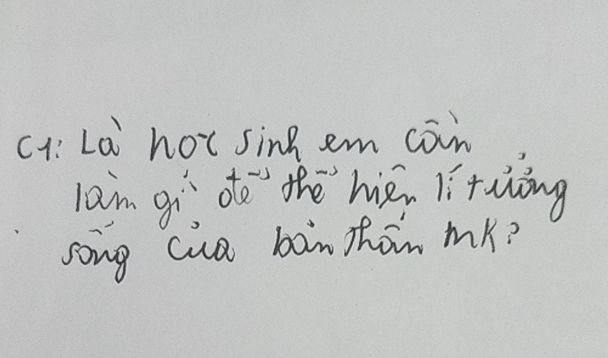 C1: Là học sinh em cần
làm gì để thể hiện lí tưởng
sống của bản thân mk?